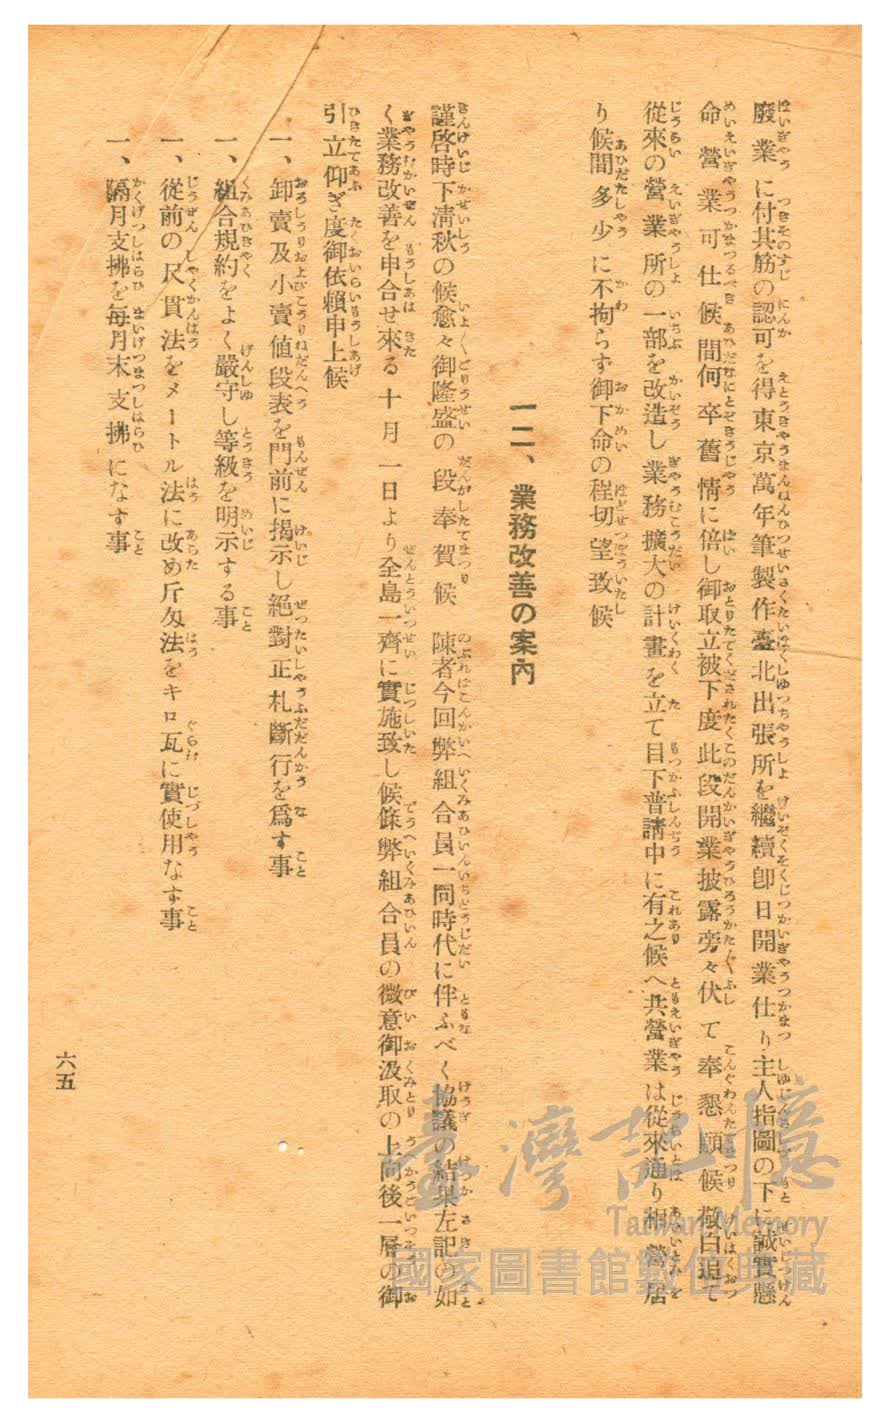 廢業に付其筋の認可を得東京萬年筆製作臺北出張所を繼續卽日開業仕り主人指圖の下に誠實懸
命營業可仕候間何卒舊情に倍し御取立被下度此段開業披露旁々伏て奉懇願候敬白追て
從來の營業所の一部を改造し業務擴大の計畫を立て目下普請中に有之候へ共營業は從來通り相營居
り候間多少に不拘らず御下命の程切望致候
一二、業務改善の案內
謹啓時下淸秋の候愈々御隆盛の段奉賀候　陳者今回弊組合員一同時代に伴ふべく協議の結果左記の如
く業務改善を申合せ來る十月一日より全島一齊に實施致し候條弊組合員の微意御汲取の上向後一層の御
引立仰ぎ度御依賴申上候
一、卸賣及小賣値段表を門前に揭示し絕對正札斷行を爲す事
一、組合規約をよく嚴守し等級を明示する事
一、從前の尺貫法をメートル法に改め斤匁法をキロ瓦に實使用なす事
一、隔月支拂を每月末支拂になす事
六五
臺灣記憶
Taiwan Memory
國家圖書館數位典藏